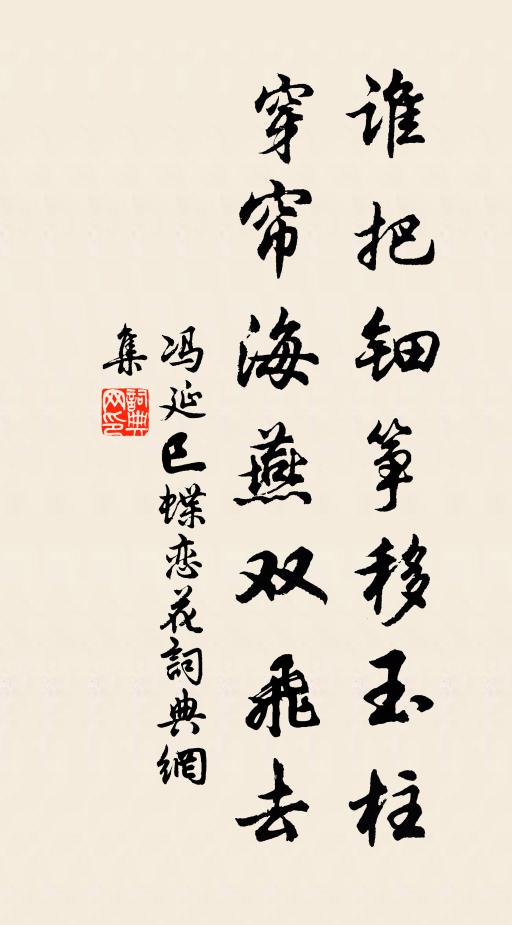 谁把钿筝移玉柱
穿帘海燕双飞去
冯延巳蝶恋花詞典網
集
詞典网印